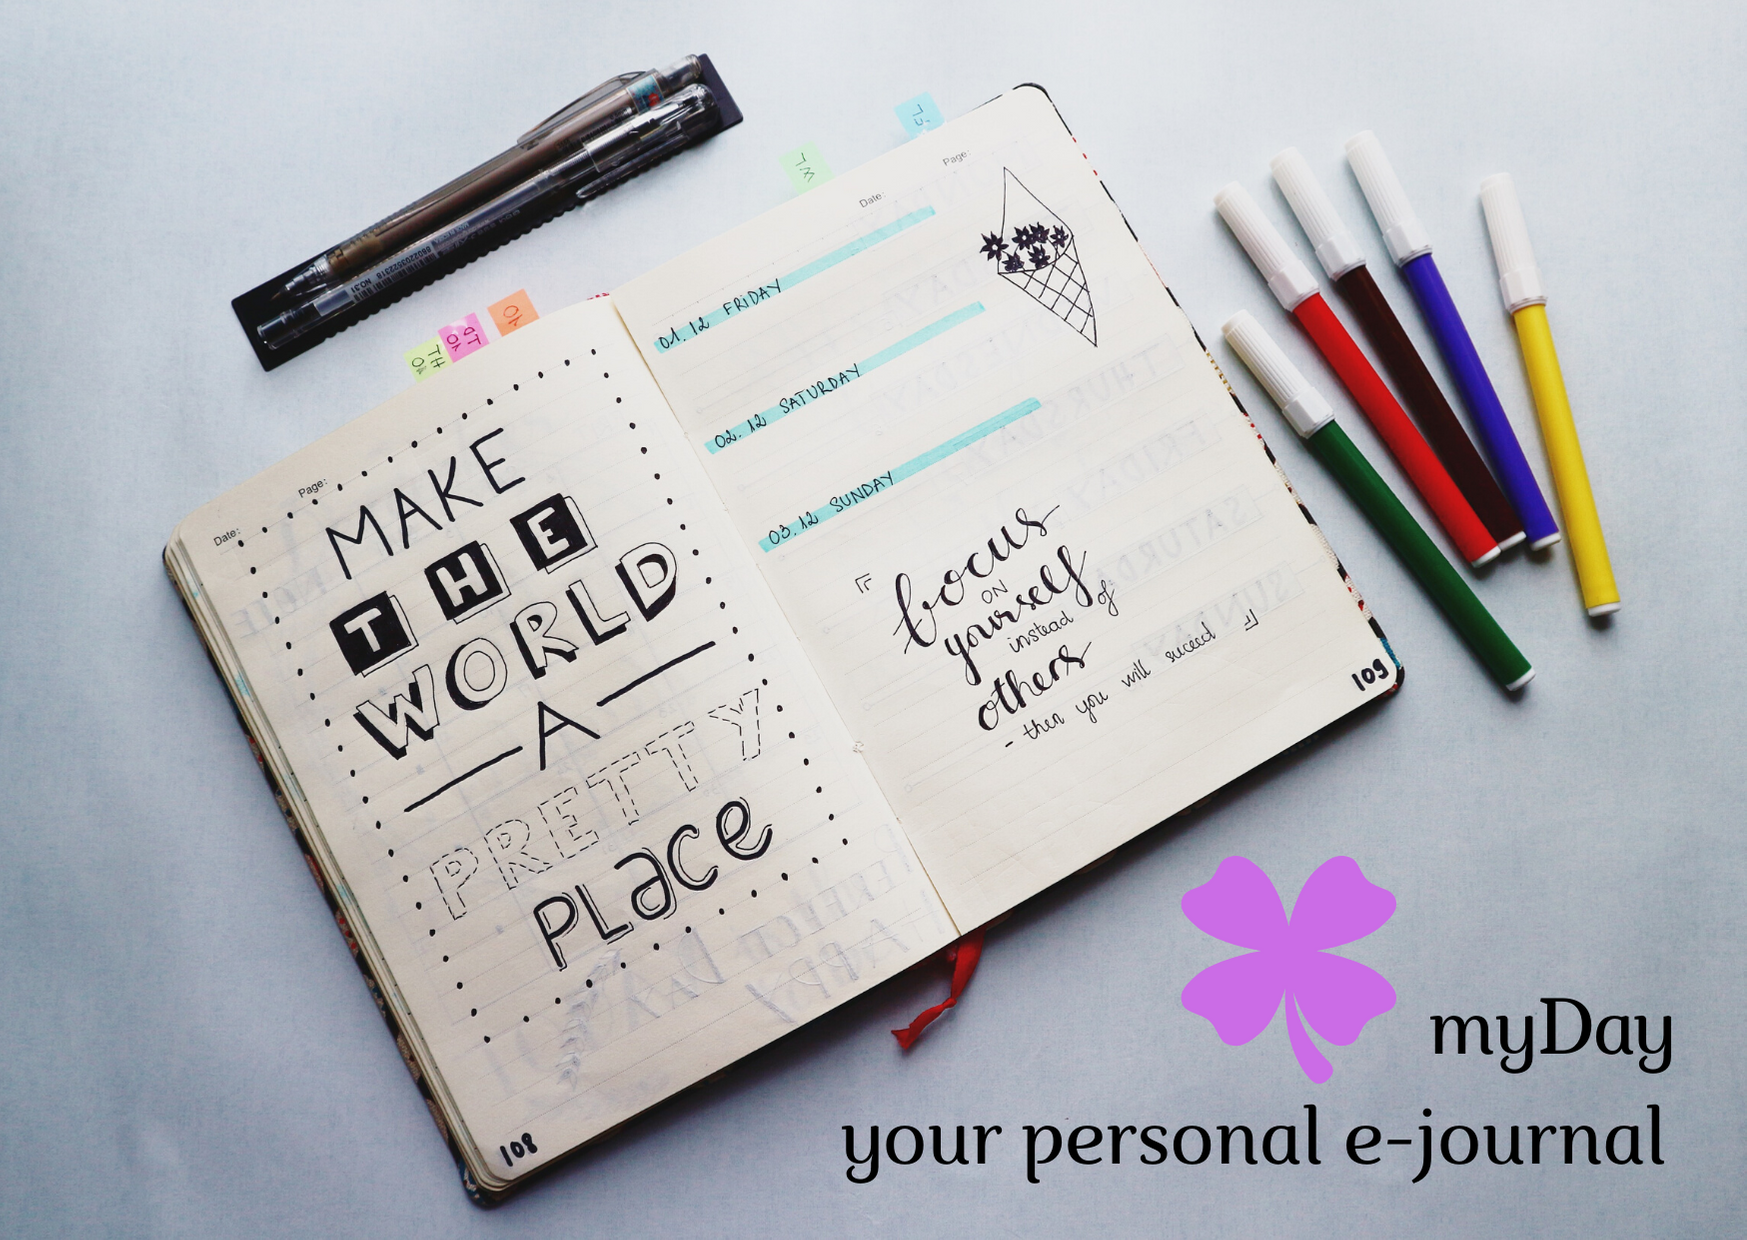 Date:
Page:
MAKE
THE
WORLD
A
PRETTY
PLace
108
Date:
Page:
01.12 FRIDAY
02.12 SATURDAY
03.12 SUNDAY
focus
ON
yourself
instead of
others
- then you will succeed
109
myDay
your personal e-journal